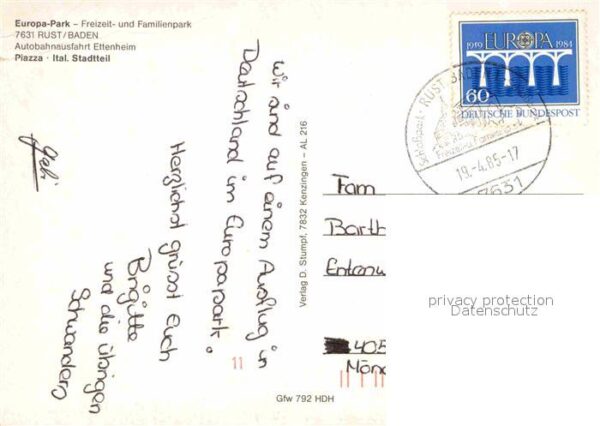 Europa-Park – Freizeit- und Familienpark
7631 RUST/BADEN
Autobahnausfahrt Ettenheim
Piazza · Ital. Stadtteil
Wir sind auf einem Ausflug in
Deutschland im Europapark.
Herzlichst grüsst Euch
Brigitte
und die übrigen
Schwanders
Gabi
Verlag D. Stumpf, 7832 Kenzingen – AL 216
1919 EUROPA 1984
60
DEUTSCHE BUNDESPOST
RUST BADEN
19.-4.85-17
7631
Fam
Barth
privacy protection
Datenschutz
405
Mönc
11
Gfw 792 HDH